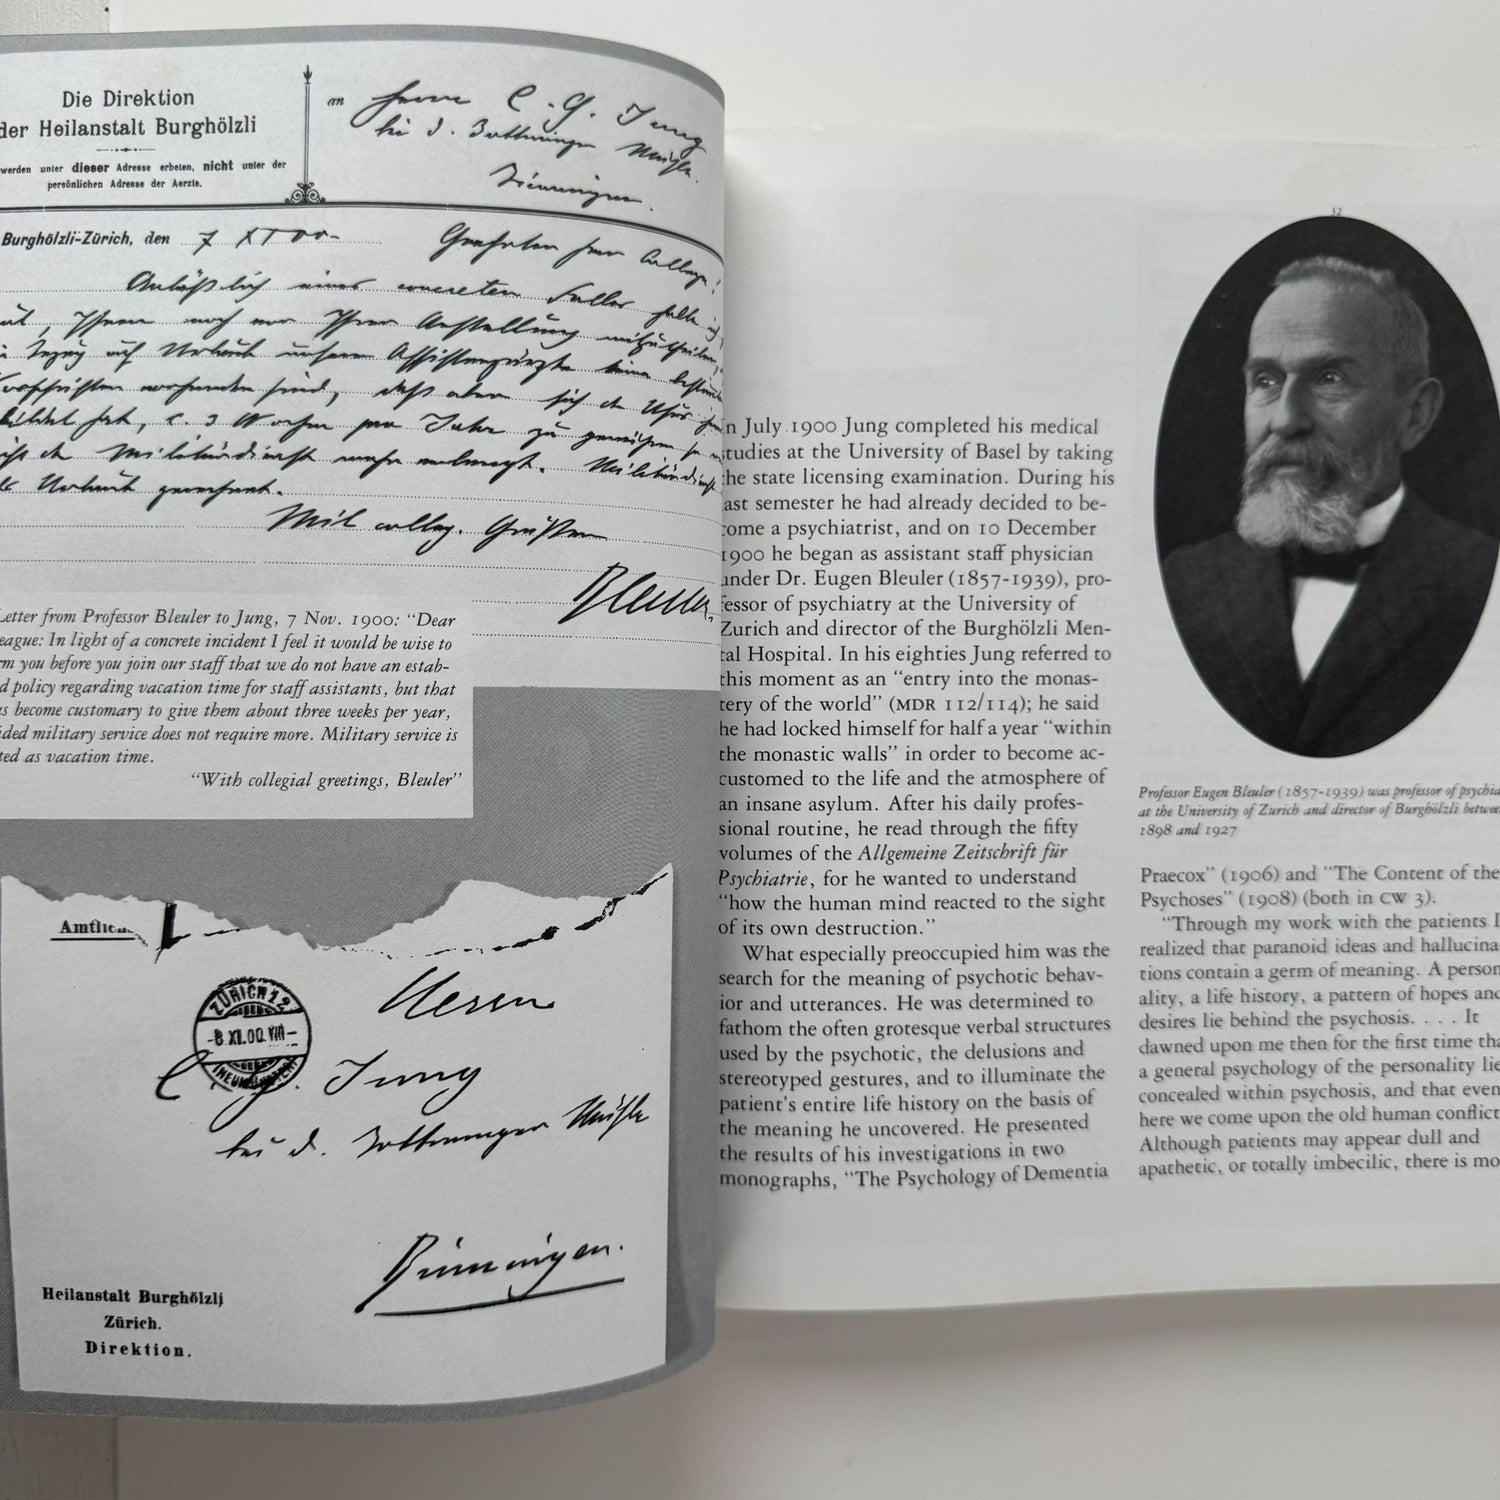 Die Direktion
der Heilanstalt Burghölzli
werden unter dieser Adresse erbeten, nicht unter der
persönlichen Adresse der Aerzte.
an Herrn C. G. Jung
bei d. Bottminger Mühle.
Binningen.
Burghölzli-Zürich, den 7 XI 00
Geehrter Herr College!
Anläßlich eines concreten Falles halte ich
gut, Ihnen noch vor Ihrer Anstellung mitzutheilen,
in Bezug auf Urlaub unserer Assistenzärzte keine
Vorschriften vorhanden sind, daß aber sich der Usus
bildet hat, c. 3 Wochen pro Jahr zu gewähren
Militärdienst mehr verlangt. Militärdienst
Urlaub gerechnet.
Mit colleg. Grüßen
Bleuler.
Letter from Professor Bleuler to Jung, 7 Nov. 1900: “Dear
eague: In light of a concrete incident I feel it would be wise to
rm you before you join our staff that we do not have an estab-
d policy regarding vacation time for staff assistants, but that
as become customary to give them about three weeks per year,
ided military service does not require more. Military service is
ted as vacation time.
“With collegial greetings, Bleuler”
ZÜRICH 12
-8.XI.00.VIII-
(NEUMÜNSTER)
Herrn
C. G. Jung
bei d. Bottminger Mühle
Binningen.
Heilanstalt Burghölzli
Zürich.
Direktion.
32
n July 1900 Jung completed his medical
studies at the University of Basel by taking
the state licensing examination. During his
last semester he had already decided to be-
come a psychiatrist, and on 10 December
1900 he began as assistant staff physician
under Dr. Eugen Bleuler (1857-1939), pro-
fessor of psychiatry at the University of
Zurich and director of the Burghölzli Men-
tal Hospital. In his eighties Jung referred to
this moment as an “entry into the monas-
tery of the world” (MDR 112/114); he said
he had locked himself for half a year “within
the monastic walls” in order to become ac-
customed to the life and the atmosphere of
an insane asylum. After his daily profes-
sional routine, he read through the fifty
volumes of the Allgemeine Zeitschrift für
Psychiatrie, for he wanted to understand
“how the human mind reacted to the sight
of its own destruction.”
What especially preoccupied him was the
search for the meaning of psychotic behav-
ior and utterances. He was determined to
fathom the often grotesque verbal structures
used by the psychotic, the delusions and
stereotyped gestures, and to illuminate the
patient's entire life history on the basis of
the meaning he uncovered. He presented
the results of his investigations in two
monographs, “The Psychology of Dementia
Professor Eugen Bleuler (1857-1939) was professor of psychia
at the University of Zurich and director of Burghölzli betwee
1898 and 1927
Praecox” (1906) and “The Content of the
Psychoses” (1908) (both in CW 3).
“Through my work with the patients I
realized that paranoid ideas and hallucina-
tions contain a germ of meaning. A person-
ality, a life history, a pattern of hopes and
desires lie behind the psychosis. . . . It
dawned upon me then for the first time tha
a general psychology of the personality lie
concealed within psychosis, and that even
here we come upon the old human conflict
Although patients may appear dull and
apathetic, or totally imbecilic, there is mo